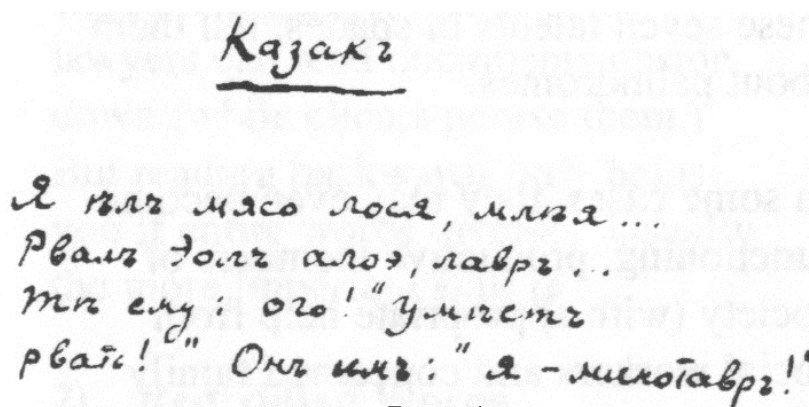 Казакъ
Я ѣлъ мясо лося, млѣя...
Рвалъ Эолъ алоэ, лавръ...
Тѣ ему: ого! "Умѣетъ
рвать!" Онъ имъ: "Я - минотавръ!"